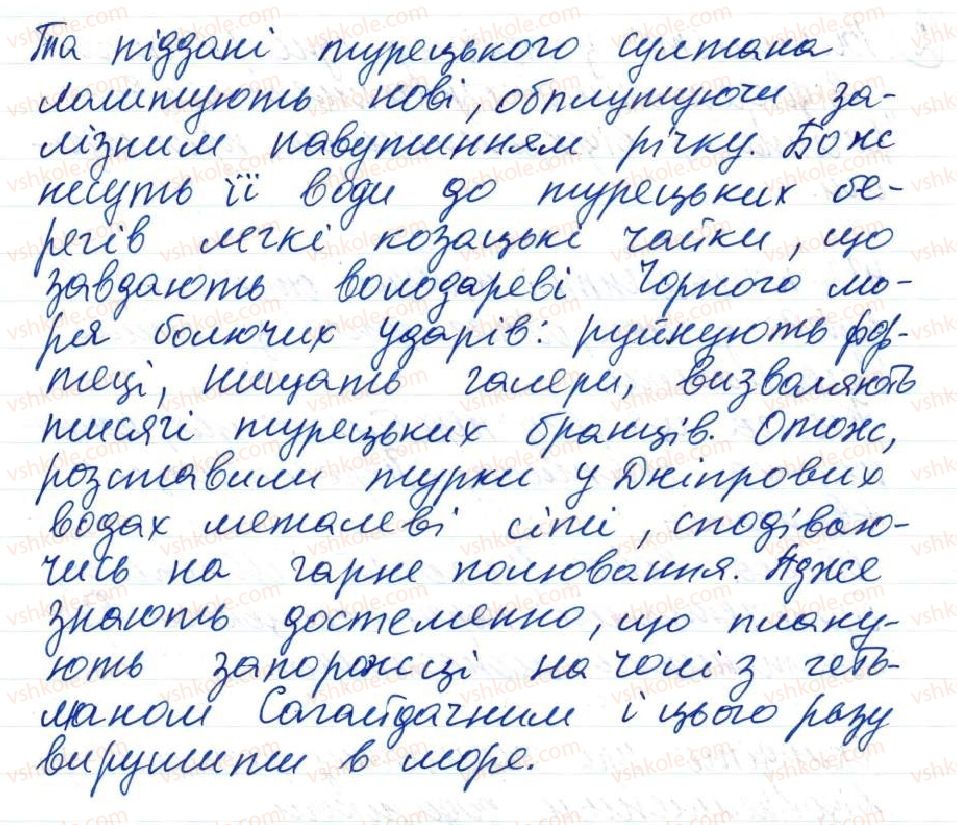 Та піддані турецького султана
лаштують нові, обплутуючи за-
лізним павутинням річку. Бо ж
несуть її води до турецьких бе-
регів легкі козацькі чайки, що
завдають володареві Чорного мо-
ря болючих ударів: руйнують фор-
теці, нищать галери, визваляють
тисячі турецьких бранців. Отож,
розставили турки у Дніпрових
водах металеві сіті, сподіваю-
чись на гарне полювання. Адже
знають достеменно, що плану-
ють запорожці на чолі з геть-
маном Сагайдачним і цього разу
вирушити в море.